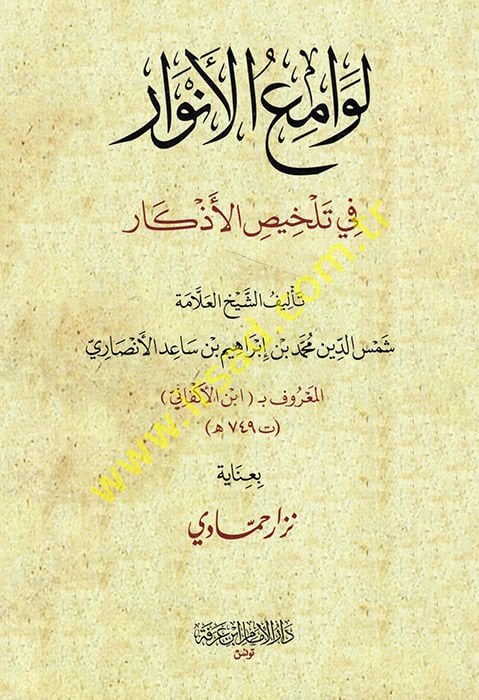 لَوَامِعُ الأَنْوَار
فِي تَلْخِيصِ الأَذْكَار
تَأْلِيفُ الشَّيْخِ العَلَّامَة
شَمْسِ الدِّين مُحَمَّد بْن إِبْرَاهِيم بْن سَاعِد الأَنْصَارِيّ
المَعْرُوف بـ ( ابْن الأَكْفَانِيّ )
(ت ٧٤٩ هـ)
بِعِنَايَة
نِزَار حَمَّادِي
دَارُ الإِمَام ابْن عَرَفَة
تونس